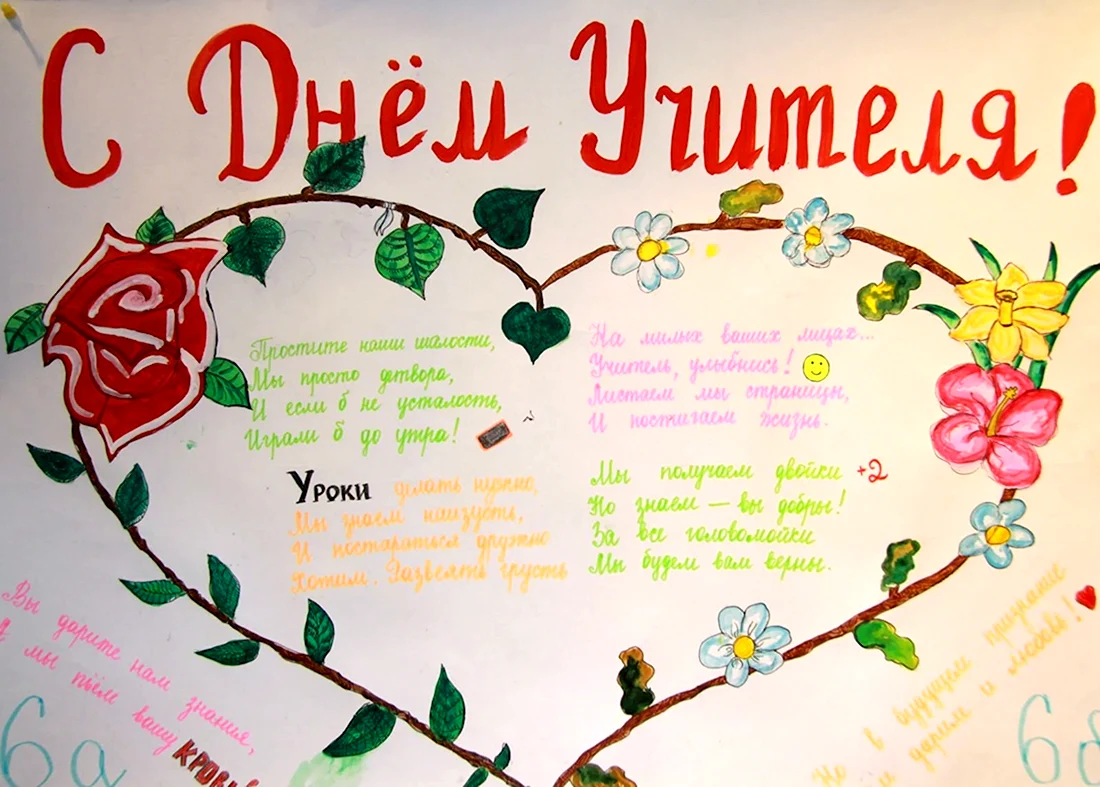 С Днём Учителя!
Простите наши шалости,
Мы просто детвора,
И если б не усталость,
Играли б до утра!
Уроки делать нужно,
Мы знаем наизусть,
И постараться дружно
Хотим. Развеять грусть
На милых ваших лицах...
Учитель, улыбнись!
Листаем мы страницы,
И постигаем жизнь.
Мы получаем двойки +2
Но знаем — вы добры!
За все головомойки
Мы будем вам верны.
Вы дарите нам знания,
А мы пьём вашу кровь
6а
Но в будущем признание
дарим и любовь!
6б